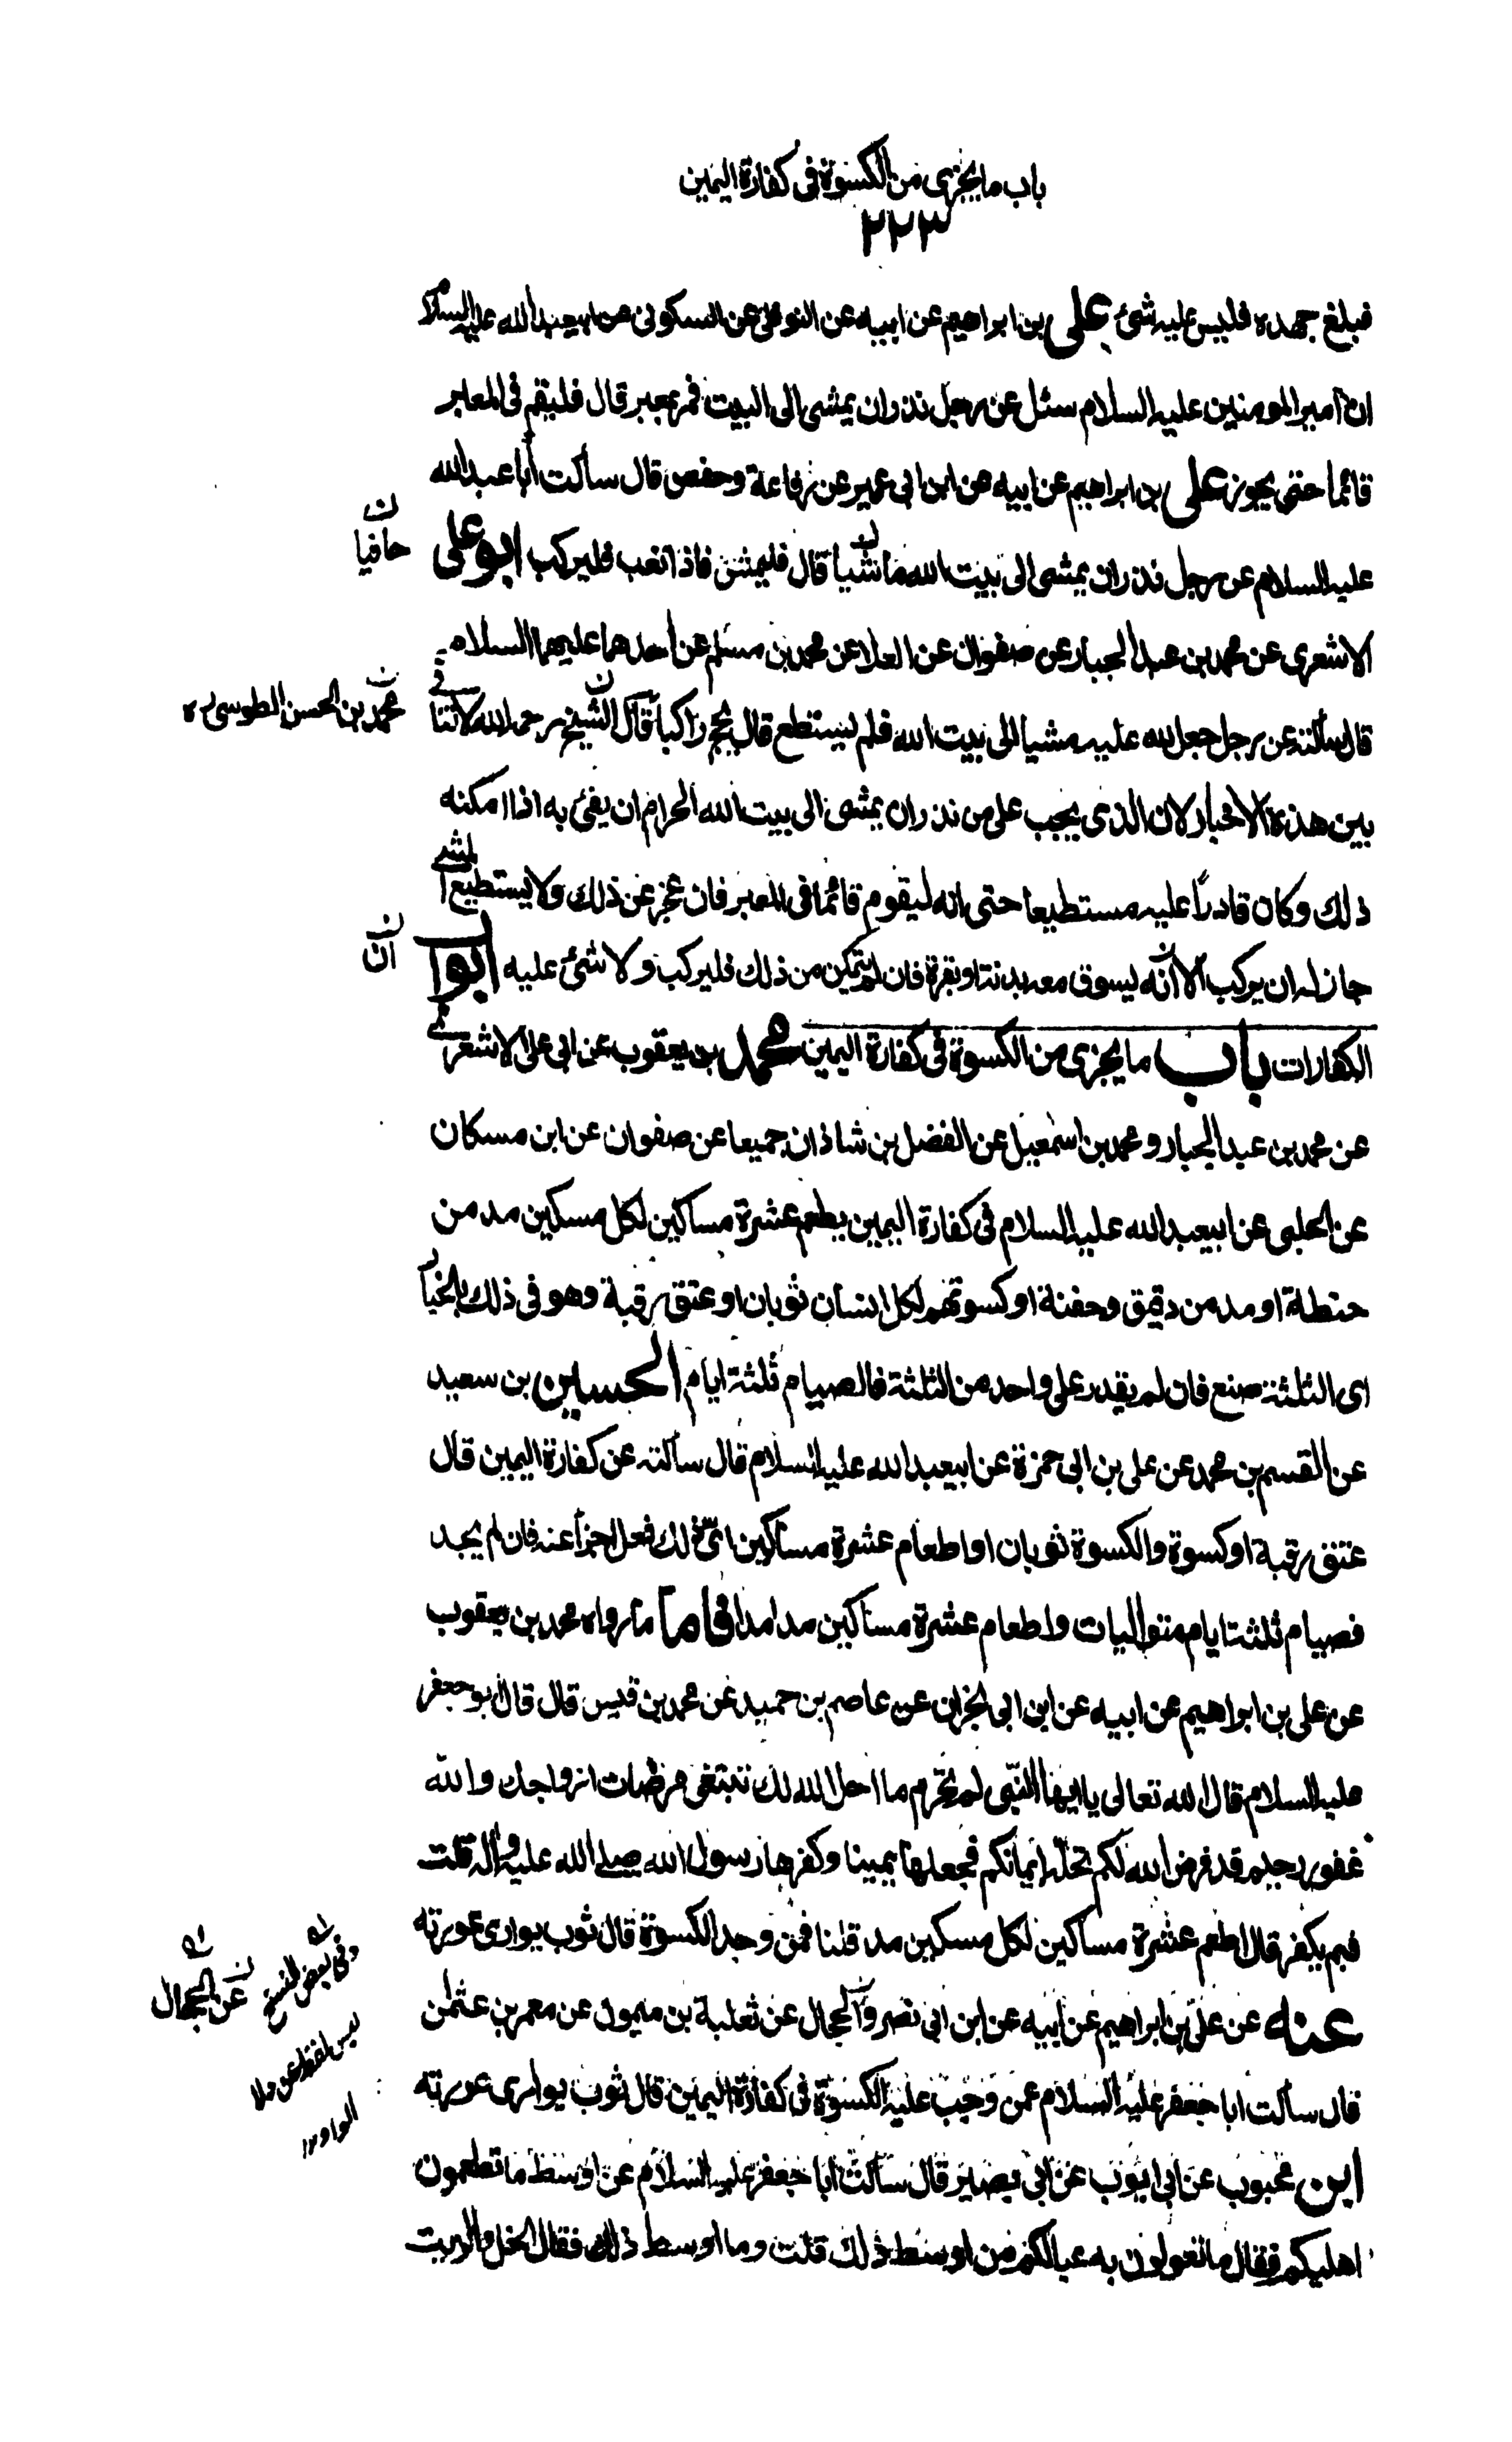 باب ما يجزى من الكسوة فى كفارة اليمين
٢٢٣
فبلغ جهده فليس عليه شئ على بن ابراهيم عن ابيه عن النوفلى عن السكونى عن ابيعبد الله عليه السلام
ان امير المومنين عليه السلام سئل عن رجل نذر ان يمشى الى البيت فمر بمعبر قال فليقم فى المعبر
قائما حتى يجوز على بن ابراهيم عن ابيه عن ابن ابى عمير عن رفاعة وحفص قال سألت أبا عبد الله
عليه السلام عن رجل نذر ان يمشى الى بيت الله ماشيا قال فليمش فاذا تعب فليركب ابو على
حافيا
الاشعرى عن محمد بن عبد الجبار عن صفوان عن العلا عن محمد بن مسلم عن أحدهما عليهما السلام
قال سألته عن رجل جعل لله عليه مشيا الى بيت الله فلم يستطع قال يحج راكبا قال الشيخ رحمه الله لا تنافى
محمد بن الحسن الطوسى ره
بين هذه الاخبار لان الذى يجب على من نذر ان يمشى الى بيت الله الحرام ان يفئ به اذا امكنه
ذلك وكان قادرًا عليه مستطيعا حتى انه ليقوم قائما فى المعبر فان عجز عن ذلك ولا يستطيع المشى
جاز له ان يركب الا أنه يسوق معه بدنة او بقرة فان لم يتمكن من ذلك فليركب ولا شئ عليه ابواب
ان
الكفارات باب ما يجزى من الكسوة فى كفارة اليمين محمد بن يعقوب عن ابى على الاشعرى
عن محمد بن عبد الجبار و محمد بن اسمعيل عن الفضل بن شاذان جميعا عن صفوان عن ابن مسكان
عن الحلبى عن ابيعبد الله عليه السلام فى كفارة اليمين يطعم عشرة مساكين لكل مسكين مد من
حنطة او مد من دقيق وحفنة او كسوتهم لكل انسان ثوبان او عتق رقبة وهو فى ذلك بالخيار
اى الثلثة صنع فان لم يقدر على واحد من الثلثة فالصيام ثلثة ايام الحسين بن سعيد
عن القسم بن محمد عن على بن ابى حمزة عن ابيعبد الله عليه السلام قال سألته عن كفارة اليمين قال
عتق رقبة او كسوة والكسوة ثوبان او اطعام عشرة مساكين اىّ ذلك فعل اجزأ عنه فان لم يجد
فصيام ثلثة ايام متواليات واطعام عشرة مساكين مدا مدا فاما ما رواه محمد بن يعقوب
عن على بن ابراهيم عن ابيه عن ابن ابى نجران عن عاصم بن حميد عن محمد بن قيس قال قال ابو جعفر
عليه السلام قال الله تعالى يا ايها النبى لم تحرم ما احل الله لك تبتغى مرضات ازواجك والله
غفور رحيم قد فرض الله لكم تحلة ايمانكم فجعلها يمينا وكفرها رسول الله صلى الله عليه واله قلت
فبم يكفر قال اطعم عشرة مساكين لكل مسكين مد قلنا فمن وجد الكسوة قال ثوب يوارى عورته
عنه عن على بن ابراهيم عن ابيه عن ابن ابى نصر والحجال عن ثعلبة بن ميمون عن معمر بن عثمن
عن الحجال
وفى بعض النسخ
ليس لفظ عن
الواو ١٢
قال سألت ابا جعفر عليه السلام عمن وجب عليه الكسوة فى كفارة اليمين قال ثوب يوارى عورته
ابن محبوب عن ابى ايوب عن ابى بصير قال سألت ابا جعفر عليه السلام عن اوسط ما تطعمون
اهليكم فقال ما تعولون به عيالكم من اوسط ذلك قلت وما اوسط ذلك فقال الخل والزيت